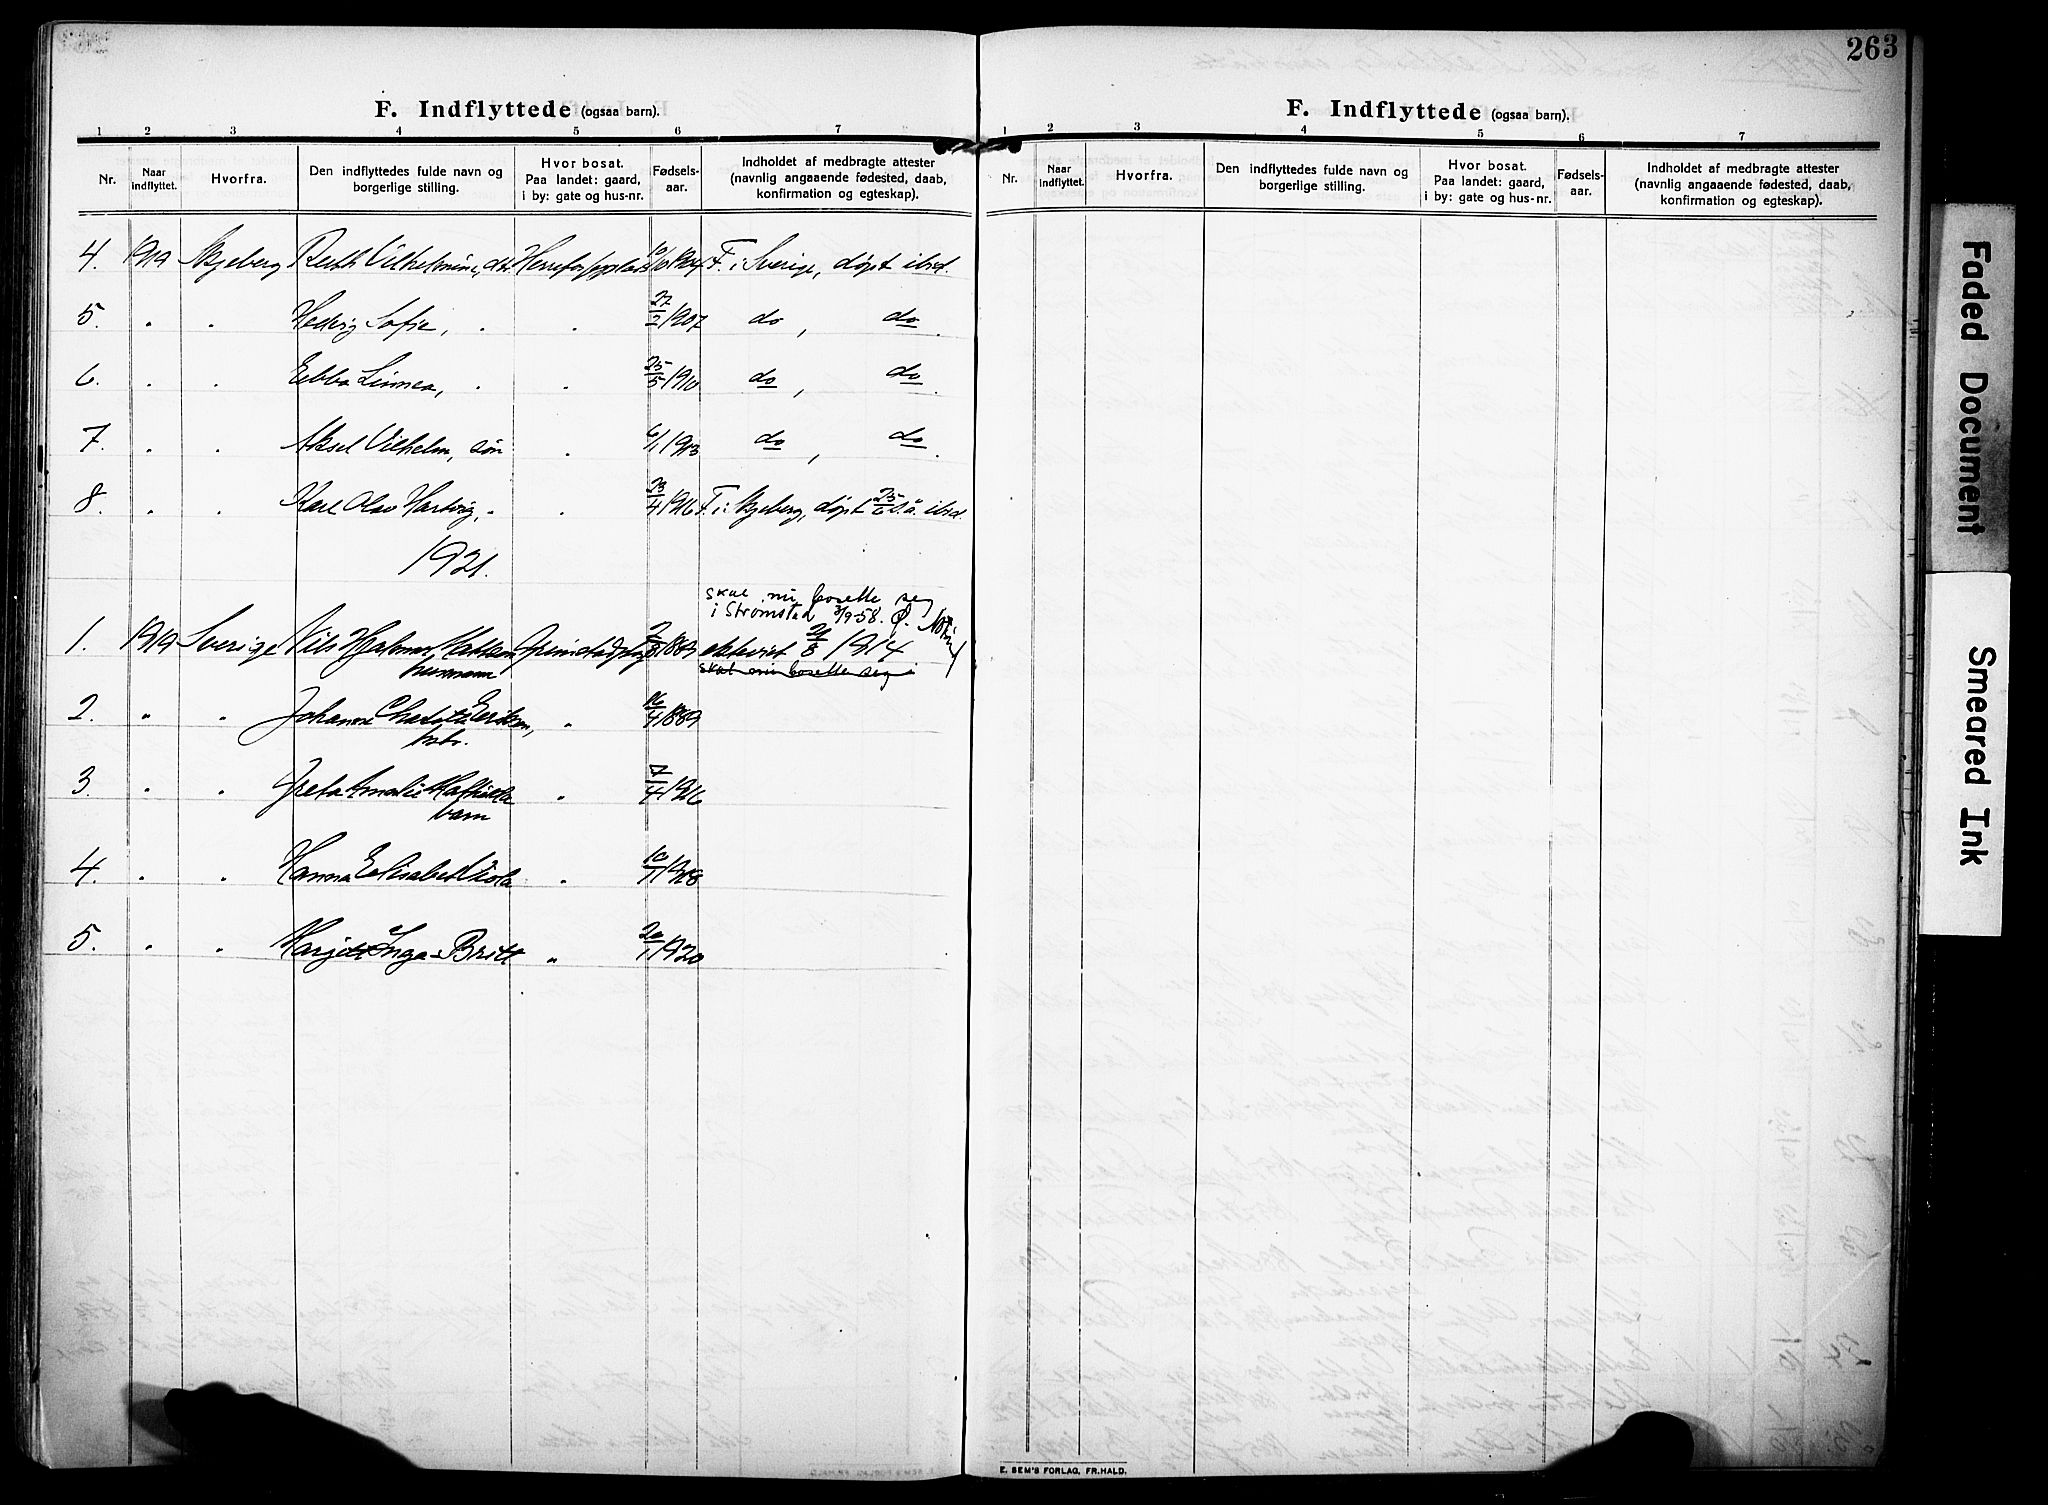 263
F. Indflyttede (ogsaa barn).
1 2 3 4 5 6 7
Nr. Naar indflyttet. Hvorfra. Den indflyttedes fulde navn og borgerlige stilling. Hvor bosat. Paa landet: gaard, i by: gate og hus-nr. Fødsels-aar. Indholdet af medbragte attester (navnlig angaaende fødested, daab, konfirmation og egteskap).
4. 1919 Skjeberg Vilhelmine, dtr. 10/10 1904 F. i Sverige, døpt ibid.
5. " " Hedvig Sofie, " " 27/2 1907 do, do.
6. " " Ebba Linnea, " " 25/5 1910 do, do.
7. " " Aksel Vilhelm, søn " 6/1 1913 do, do.
8. " " Karl Olav Hartvig, " " 23/4 1916 F. i Skjeberg, døpt 25/6 s.å. ibid.
1921.
skal nu bosette seg
i Strømstad 3/9-58. Ø.
1. 1919 Sverige Nils Hjalmar 1889 ekteviet 1914
skal nu bosette seg i
2. " " Johanna Erikson, " 16/4 1889
hstr.
3. " " Greta Amalie " 7/4 1916
barn
4. " " Hanna Elisabet Viola " 10/1 1918
5. " " Inga-Britt " 20/1 1920
F. Indflyttede (ogsaa barn).
1 2 3 4 5 6 7
Nr. Naar indflyttet. Hvorfra. Den indflyttedes fulde navn og borgerlige stilling. Hvor bosat. Paa landet: gaard, i by: gate og hus-nr. Fødsels-aar. Indholdet af medbragte attester (navnlig angaaende fødested, daab, konfirmation og egteskap).
E. SEM'S FORLAG, FR.HALD.
Faded Document
Smeared Ink